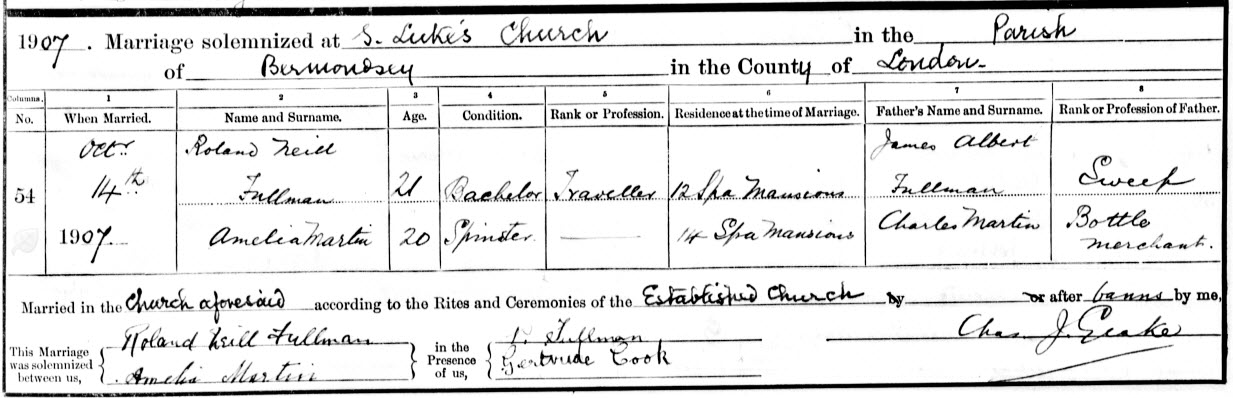 1907. Marriage solemnized at S. Luke's Church in the Parish
of Bermondsey in the County of London.
Columns. 1 2 3 4 5 6 7 8
No. When Married. Name and Surname. Age. Condition. Rank or Profession. Residence at the time of Marriage. Father's Name and Surname. Rank or Profession of Father.
Octr. Roland Neill James Albert
54 14th Fullman 21 Bachelor Traveller 12 Spa Mansions Fullman Sweep
1907. Amelia Martin 20 Spinster 14 Spa Mansions Charles Martin Bottle
merchant.
Married in the Church aforesaid according to the Rites and Ceremonies of the Established Church by or after banns by me,
Roland Neill Fullman Fullman Chas. J. Geake
This Marriage was solemnized between us, in the Presence of us,
Amelia Martin Gertrude Cook